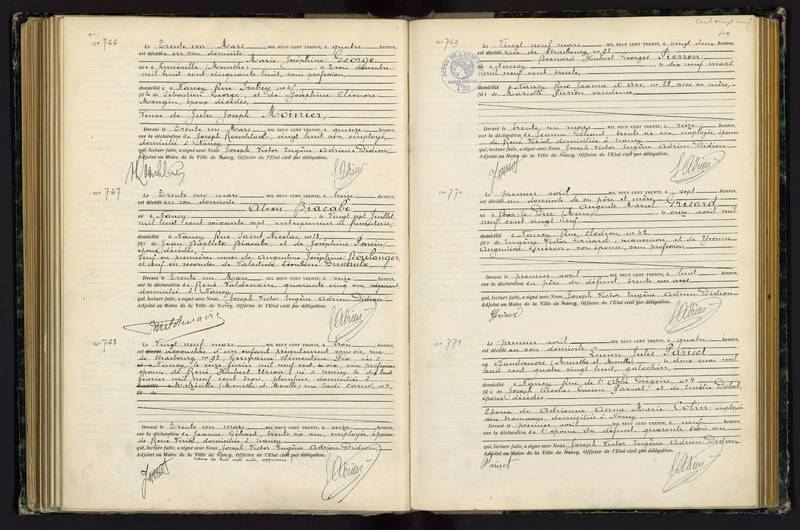 Cent vingt neuf
129
no 766
Le Trente un Mars MIL NEUF CENT TRENTE, à quatre heures,
est décédée en son domicile
Marie Joséphine George
née à Lunéville (Meurthe) le trois décembre
mil huit cent cinquante huit, sans profession,
domiciliée à Nancy Rue Isabey no
fille de Sébastien George, et de Joséphine Eléonore
Mougin, époux décédés,
Veuve de Jules Joseph Moinier,
Dressé le Trente un Mars MIL NEUF CENT TRENTE, à quinze heures,
sur la déclaration de Joseph vingt huit ans, employé,
domicilié à Nancy
qui, lecture faite, a signé avec Nous Joseph Victor Eugène Adrien Didion
Adjoint au Maire de la Ville de Nancy, Officier de l'Etat civil par délégation.
no 767
Le Trente un mars MIL NEUF CENT TRENTE, à treize heures,
est décédé en son domicile
Alexis Biacabe
né à Nancy le vingt sept Juillet
mil huit cent soixante sept, entrepreneur de fumisterie,
domicilié à Nancy Rue Saint Nicolas, no 13
fils de Jean Baptiste Biacabe, et de Joséphine
époux décédés,
Veuf en premières noces de Augustine Joséphine Boulanger
et veuf en secondes de Valentine Léontine
Dressé le Trente un Mars MIL NEUF CENT TRENTE, à seize heures,
sur la déclaration de René Valdenaire, quarante cinq ans, négociant,
domicilié à Nancy
qui, lecture faite, a signé avec Nous Joseph Victor Eugène Adrien Didion
Adjoint au Maire de la Ville de Nancy, Officier de l'Etat civil par délégation.
no 768
Le Vingt neuf mars MIL NEUF CENT TRENTE, à trois heures,
est accouchée d'un enfant présentement sans vie, rue
de Strasbourg no 93 Clémentine
à Nancy, le seize février mil neuf cent six, sans profession
épouse de René Hubert né à Nancy le dix huit
février mil neuf cent trois, plombier, domiciliés à
(Meurthe et Moselle) rue Sadi Carnot, no 4,
Dressé le Trente un mars MIL NEUF CENT TRENTE, à seize heures,
sur la déclaration de Jeanne Géhant, trente six ans, employée, épouse
de René Viriot, domiciliée à Nancy
qui, lecture faite, a signé avec Nous Joseph Victor Eugène Adrien Didion
Adjoint au Maire de la Ville de Nancy, Officier de l'Etat civil par délégation.
no 769
Le Vingt neuf mars MIL NEUF CENT TRENTE, à vingt deux heures,
est décédé rue de Strasbourg no 93
Bernard Hubert Georges Pierron
né à Nancy le dix neuf mars
mil neuf cent trente,
domicilié à Nancy Rue Jeanne d'Arc, no 28, avec sa mère,
fils de Mariette Pierron vendeuse
Dressé le trente un mars MIL NEUF CENT TRENTE, à seize heures,
sur la déclaration de Jeanne Géhant, trente six ans, employée, épouse
de René Viriot domiciliée à Nancy
qui, lecture faite, a signé avec Nous Joseph Victor Eugène Adrien Didion
Adjoint au Maire de la Ville de Nancy, Officier de l'Etat civil par délégation.
no 770
Le premier avril MIL NEUF CENT TRENTE, à sept heures,
est décédé au domicile de ses père et mère,
Auguste Marcel Grisard
né à Bar le Duc (Meuse) le onze avril mil
neuf cent vingt neuf
domicilié à Nancy Rue Clodion no 42
fils de Eugène Victor Grisard, et de Yvonne
Augustine son épouse, sans profession
Dressé le premier avril MIL NEUF CENT TRENTE, à huit heures,
sur la déclaration du père du défunt, trente un ans,
qui, lecture faite, a signé avec Nous Joseph Victor Eugène Adrien Didion
Adjoint au Maire de la Ville de Nancy, Officier de l'Etat civil par délégation.
no 771
Le premier avril MIL NEUF CENT TRENTE, à quatre heures,
est décédé en son domicile
Lucien Jules Parisot
né à Vandoeuvre (Meurthe et Moselle) le deux mai mil
huit cent quatre vingt huit, galochier,
domicilié à Nancy Rue de l'Abbé Grégoire, no 4
fils de Joseph Nicolas Lucien Parisot, et de Emélie
époux décédés
Epoux de Adrienne Anna Marie Colin, employée
aux tramways, domiciliée à Nancy
Dressé le premier avril MIL NEUF CENT TRENTE, à neuf heures,
sur la déclaration de l'épouse du défunt, quarante trois ans
qui, lecture faite, a signé avec Nous Joseph Victor Eugène Adrien Didion
Adjoint au Maire de la Ville de Nancy, Officier de l'Etat civil par délégation.
Parisot